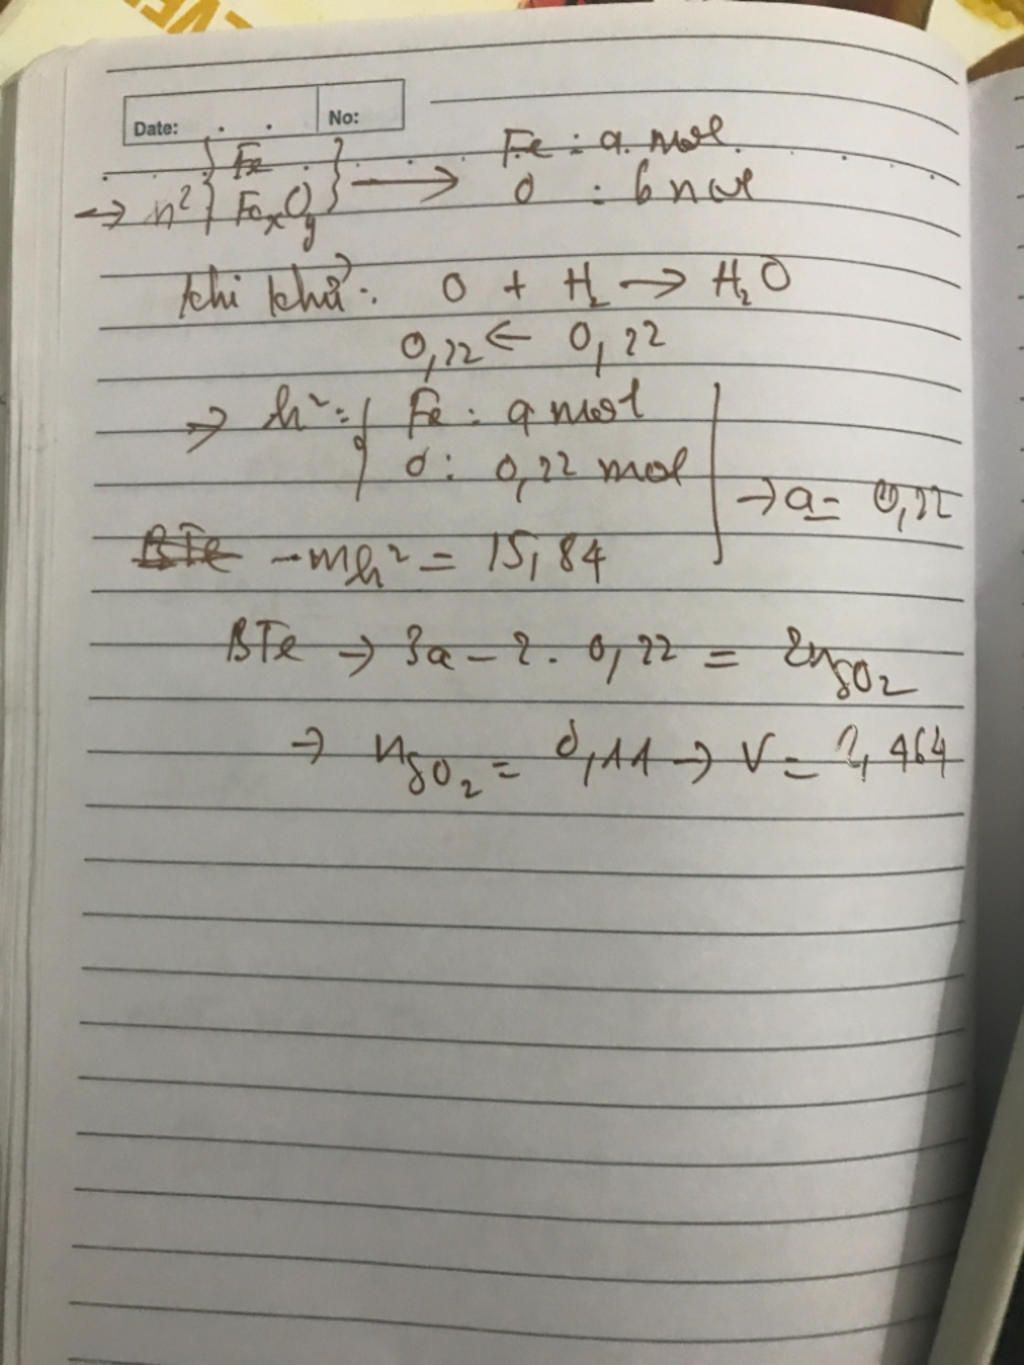 EVE
Date: . . No:
Fe Fe : a mol
→ h² { FexOy } → O : b mol
Khi khử : O + H₂ → H₂O
0,22 ← 0,22
→ h² = { Fe : a mol
O : 0,22 mol → a = 0,22
BTe - mh² = 15,84
BTe → 3a - 2. 0,22 = 2nSO₂
→ nSO₂ = 0,11 → V = 2,464